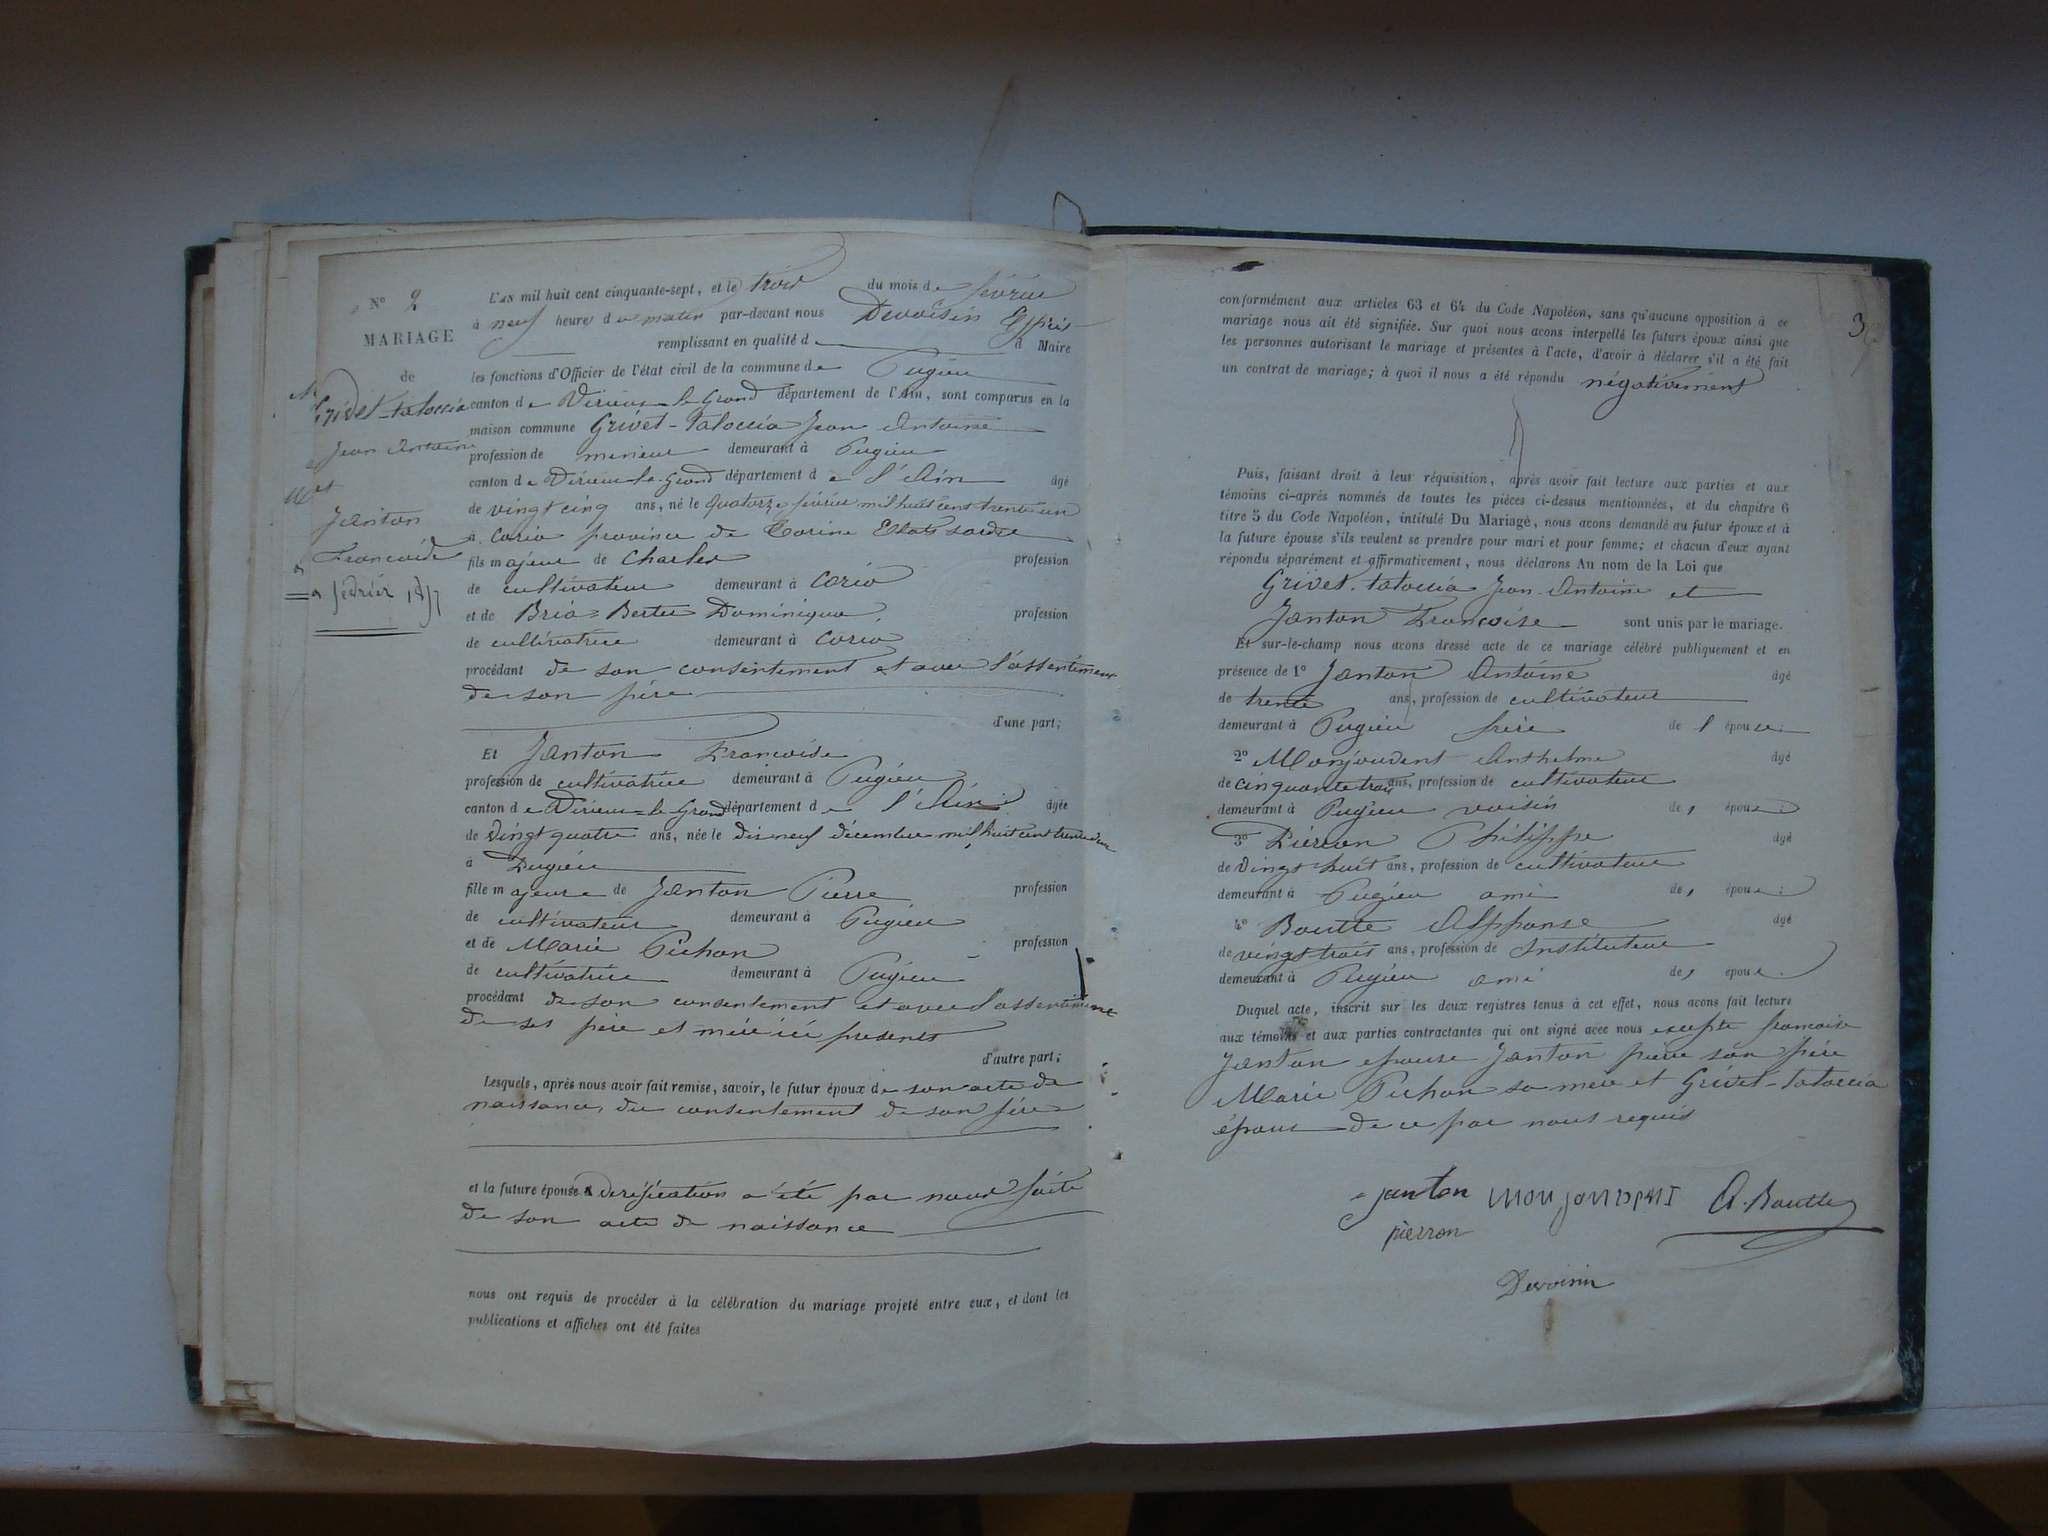 N° 2
MARIAGE
de
Grivet-tatoccia
Jean Antoine
et
Janton
Francoise
3 février 1857
L'AN mil huit cent cinquante-sept, et le trois du mois de février
à neuf heures du matin par-devant nous Devoisin Esprit
remplissant en qualité de Maire
les fonctions d'Officier de l'état civil de la commune de Pugieu
canton de Virieu-le-Grand département de l'Ain, sont comparus en la
maison commune Grivet-tatoccia Jean Antoine
profession de mineur demeurant à Pugieu
canton de Virieu-le-Grand département de l'Ain âgé
de vingt cinq ans, né le quatorze février mil huit cent trente un
à Corio province de Torine Etats sarde
fils majeur de Charles profession
de cultivateur demeurant à Corio
et de Bria-Bertu Dominiqua profession
de cultivatrice demeurant à Corio
procédant de son consentement et avec l'assentiment
de son père
d'une part;
Et Janton Francoise
profession de cultivatrice demeurant à Pugieu
canton de Virieu-le-Grand département de l'Ain âgée
de vingt quatre ans, née le dix neuf décembre mil huit cent trente deux
à Pugieu
fille majeure de Janton Pierre profession
de cultivateur demeurant à Pugieu
et de Marie Pichon profession
de cultivatrice demeurant à Pugieu
procédant de son consentement et avec l'assentiment
de ses père et mère ici présents
d'autre part;
Lesquels, après nous avoir fait remise, savoir, le futur époux de son acte de
naissance, du consentement de son père
et la future épouse verification a été par nous faite
de son acte de naissance
nous ont requis de procéder à la célébration du mariage projeté entre eux, et dont les
publications et affiches ont été faites
3
conformément aux articles 63 et 64 du Code Napoléon, sans qu'aucune opposition à ce
mariage nous ait été signifiée. Sur quoi nous avons interpellé les futurs époux ainsi que
les personnes autorisant le mariage et présentes à l'acte, d'avoir à déclarer s'il a été fait
un contrat de mariage; à quoi il nous a été répondu négativement
Puis, faisant droit à leur réquisition, après avoir fait lecture aux parties et aux
témoins ci-après nommés de toutes les pièces ci-dessus mentionnées, et du chapitre 6
titre 5 du Code Napoléon, intitulé Du Mariage, nous avons demandé au futur époux et à
la future épouse s'ils veulent se prendre pour mari et pour femme; et chacun d'eux ayant
répondu séparément et affirmativement, nous déclarons Au nom de la Loi que
Grivet-tatoccia Jean-Antoine et
Janton Francoise sont unis par le mariage.
Et sur-le-champ nous avons dressé acte de ce mariage célébré publiquement et en
présence de 1° Janton Antoine âgé
de trente ans, profession de cultivateur
demeurant à Pugieu frère de l'épouse
2° Monjoudent Anthelme âgé
de cinquante trois ans, profession de cultivateur
demeurant à Pugieu voisin de, épou
3° Pierron Philippe âgé
de vingt huit ans, profession de cultivateur
demeurant à Pugieu ami de, épou
4° Boutte Alphonse âgé
de vingt trois ans, profession de Instituteur
demeurant à Pugieu ami de, épou
Duquel acte, inscrit sur les deux registres tenus à cet effet, nous avons fait lecture
aux témoins et aux parties contractantes qui ont signé avec nous excepte francoise
Janton epouse Janton pierre son père
Marie Pichon sa mère et Grivet-tatoccia
époux de ce par nous requis
janton monjoudent A. Boutte
pierron
Devoisin